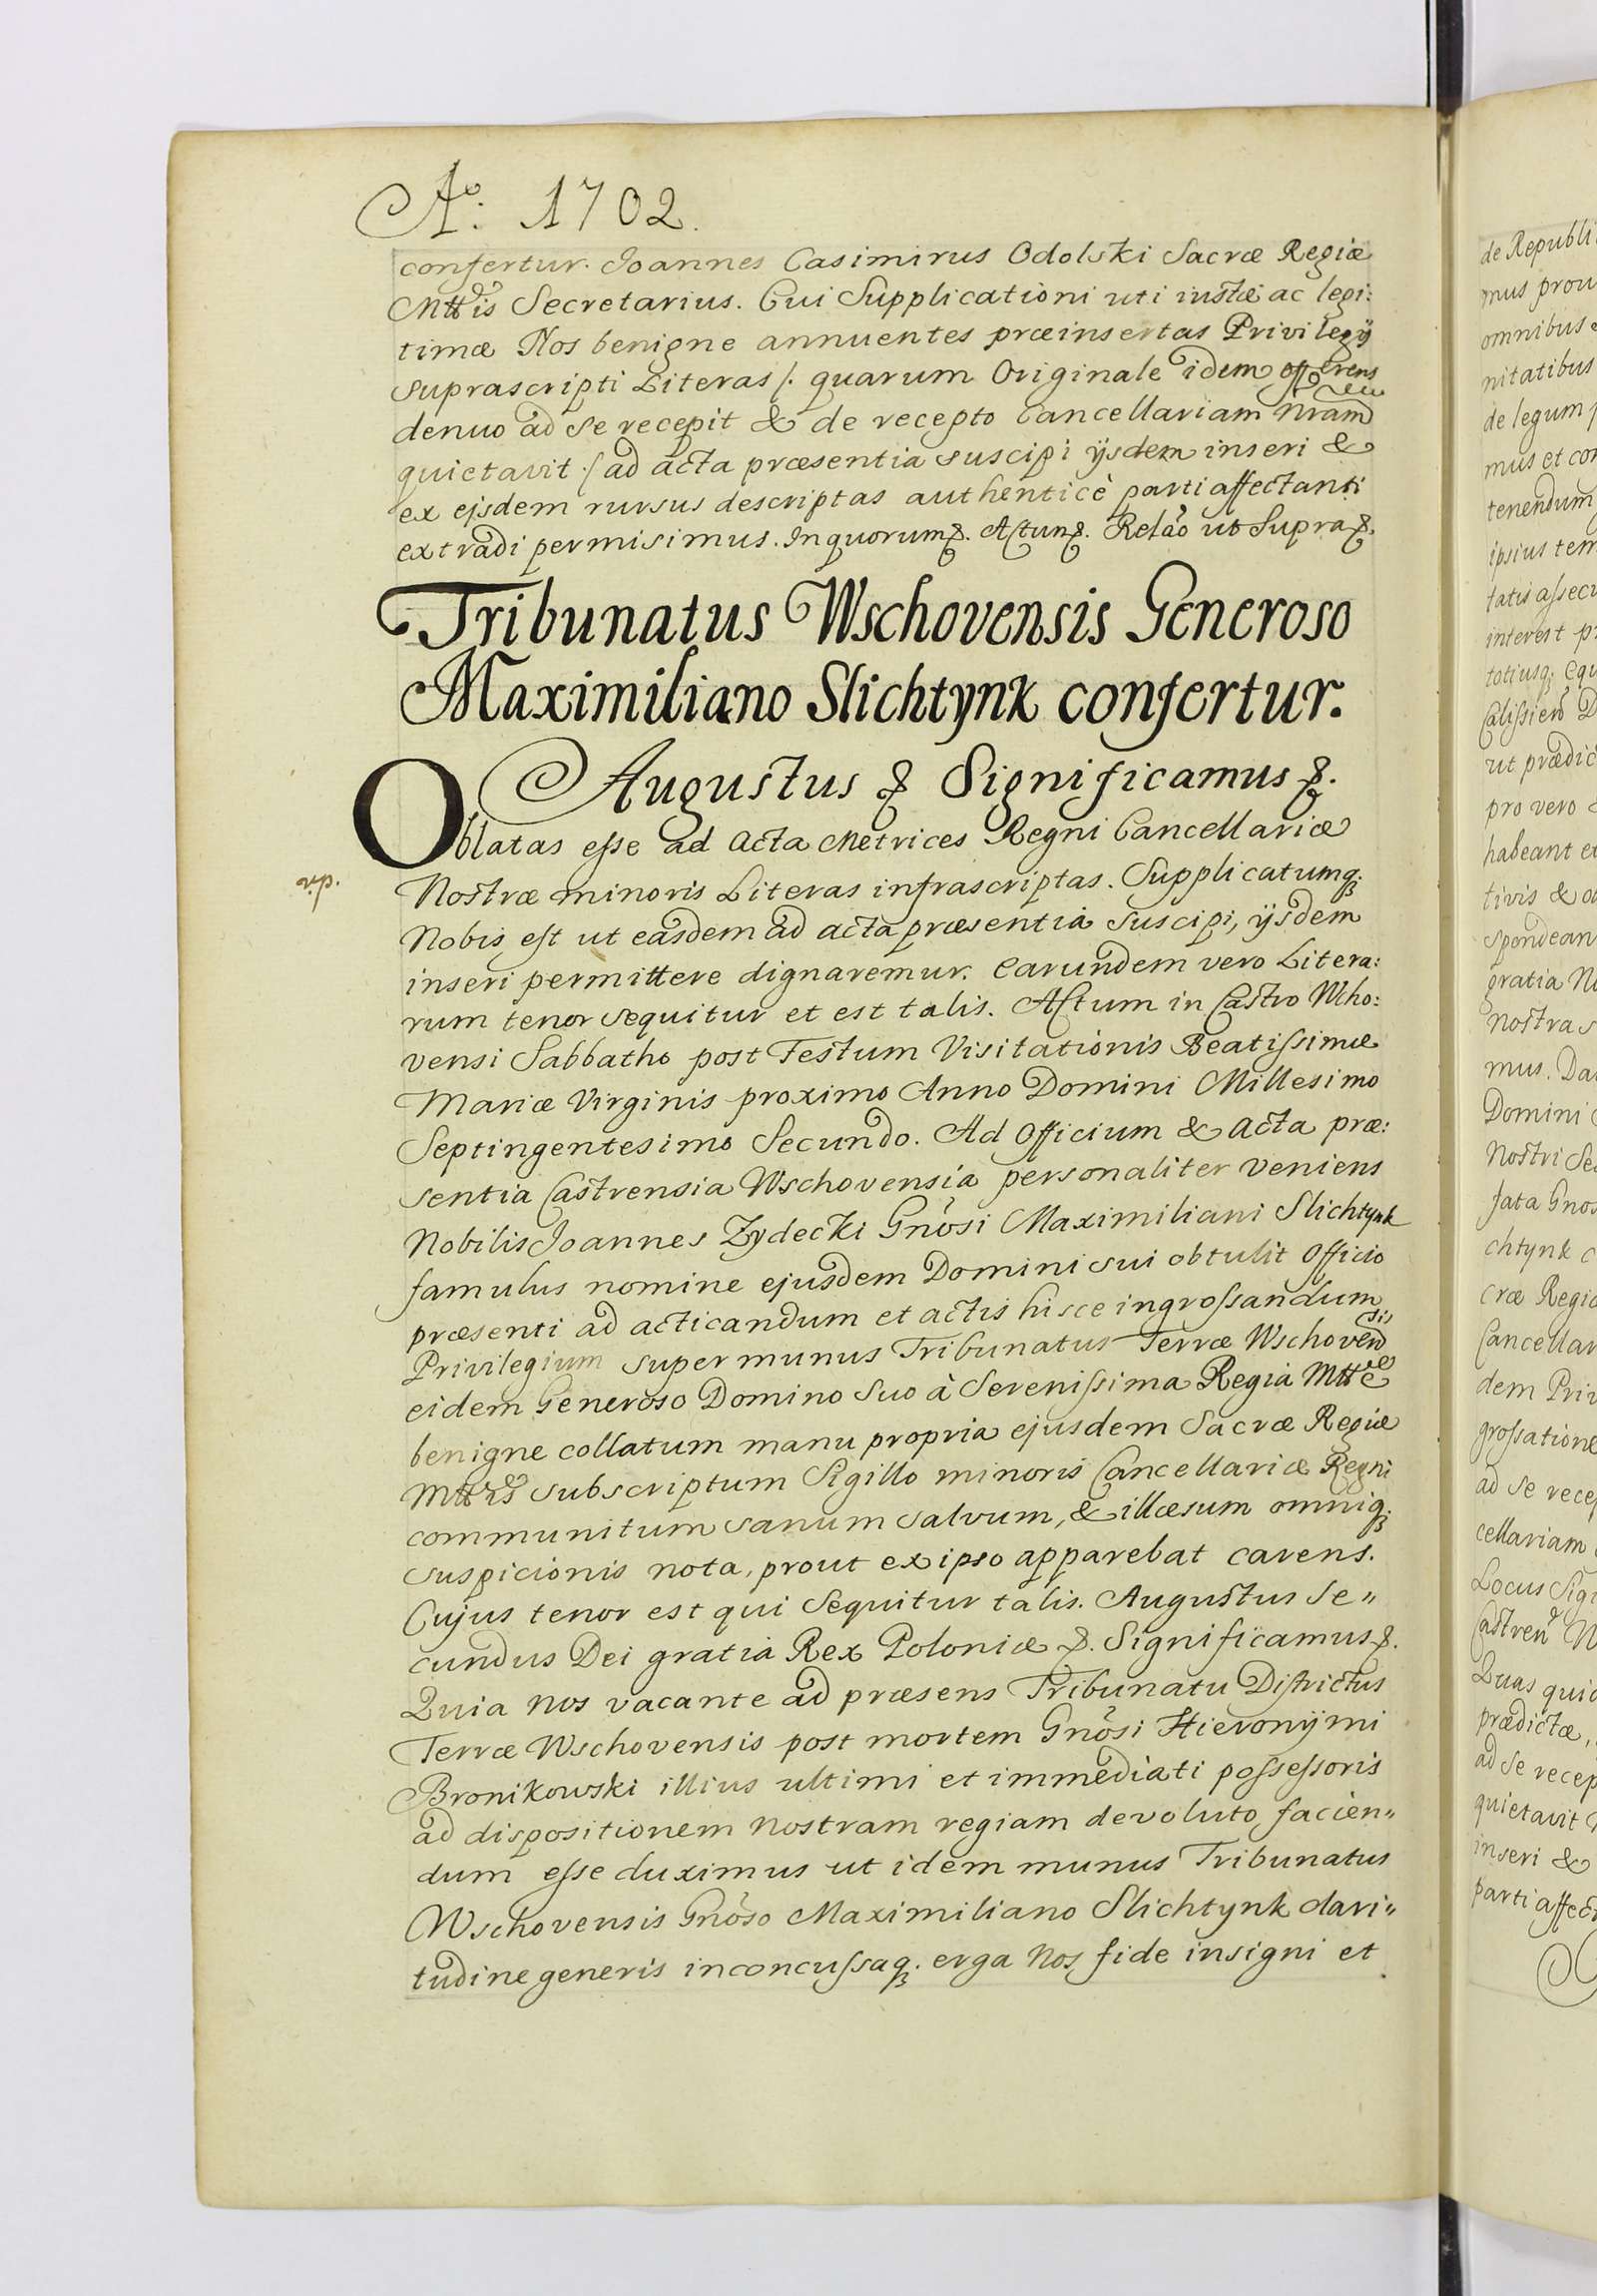 Aº: 1702.
confertur. Joannes Casimirus Odolski Sacræ Regiæ
Mttis Secretarius. Cui Supplicationi uti iustæ ac legi:
timæ Nos benigne annuentes præinsertas Privilegÿ
suprascripti Literas /. quarum Originale idem offerens
denuo ad se recepit & de recepto Cancellariam Nrãm
quietavit ./ ad acta præsentia suscipi ÿsdem inseri &
ex ejsdem rursus descriptas authenticè parti affectanti
extradi permisimus. In quorum &. Actum &. Relão ut Supra &.
Tribunatus Wschovensis Generoso
Maximiliano Slichtynk confertur.
Augustus & Significamus &.
Oblatas eſse ad Acta Metrices Regni Cancellariæ
Nostræ minoris Literas infrascriptas. Supplicatumq;
Nobis est ut easdem ad acta præsentia suscipi, ÿsdem
inseri permittere dignaremur. Earundem vero Litera:
rum tenor sequitur et est talis. Actum in Castro Wcho:
vensi Sabbatho post Festum Visitationis Beatiſsimæ
Mariæ Virginis proximo Anno Domini Millesimo
Septingentesimo Secundo. Ad Officium & Acta præ:
sentia Castrensia Wschovensia personaliter veniens
Nobilis Joannes Zydecki Gnõsi Maximiliani Slichtynk
famulus nomine ejusdem Domini sui obtulit Officio
præsenti ad acticandum et actis hisce ingroſsandum
Privilegium super munus Tribunatus Terræ Wschovensis
eidem Generoso Domino Suo à Sereniſsima Regia Mtte
benigne collatum manu propria ejusdem Sacræ Regiæ
Mttis subscriptum Sigillo minoris Cancellariæ Regni
communitum sanum salvum, & illæsum omniq;
suspicionis nota, prout ex ipso apparebat carens.
Cujus tenor est qui Sequitur talis. Augustus Se„
cundus Dei gratia Rex Poloniæ &. Significamus &.
Quia nos vacante ad præsens Tribunatu Districtus
Terræ Wschovensis post mortem Gnõsi Hieronÿmi
Bronikowski illius ultimi et immediati poſseſsoris
ad dispositionem nostram regiam devoluto, facien„
dum eſse duximus ut idem munus Tribunatus
Wschovensis Gnõso Maximiliano Slichtynk clari„
tudine generis inconcuſsaq; erga Nos fide insigni et
de Republi
mus prou
omnibus
nitatibus
de legum
mus et con
tenendum
ipsius tem
tatis aſsecu
interest pr
totiusq; Equ
Caliſsien D
ut prædic
pro vero
habeant et
tivis &
spondean
gratia No
nostra s
mus. Dat
Domini
Nostri Se
fata Gnos
chtynk c
cræ Regia
Cancellar
dem Priv
groſsatione
ad se recep
cellariam
Locus Sigi
Castren W
Quas quid
prædictæ,
ad se recep
quietavit
inseri &
parti affect